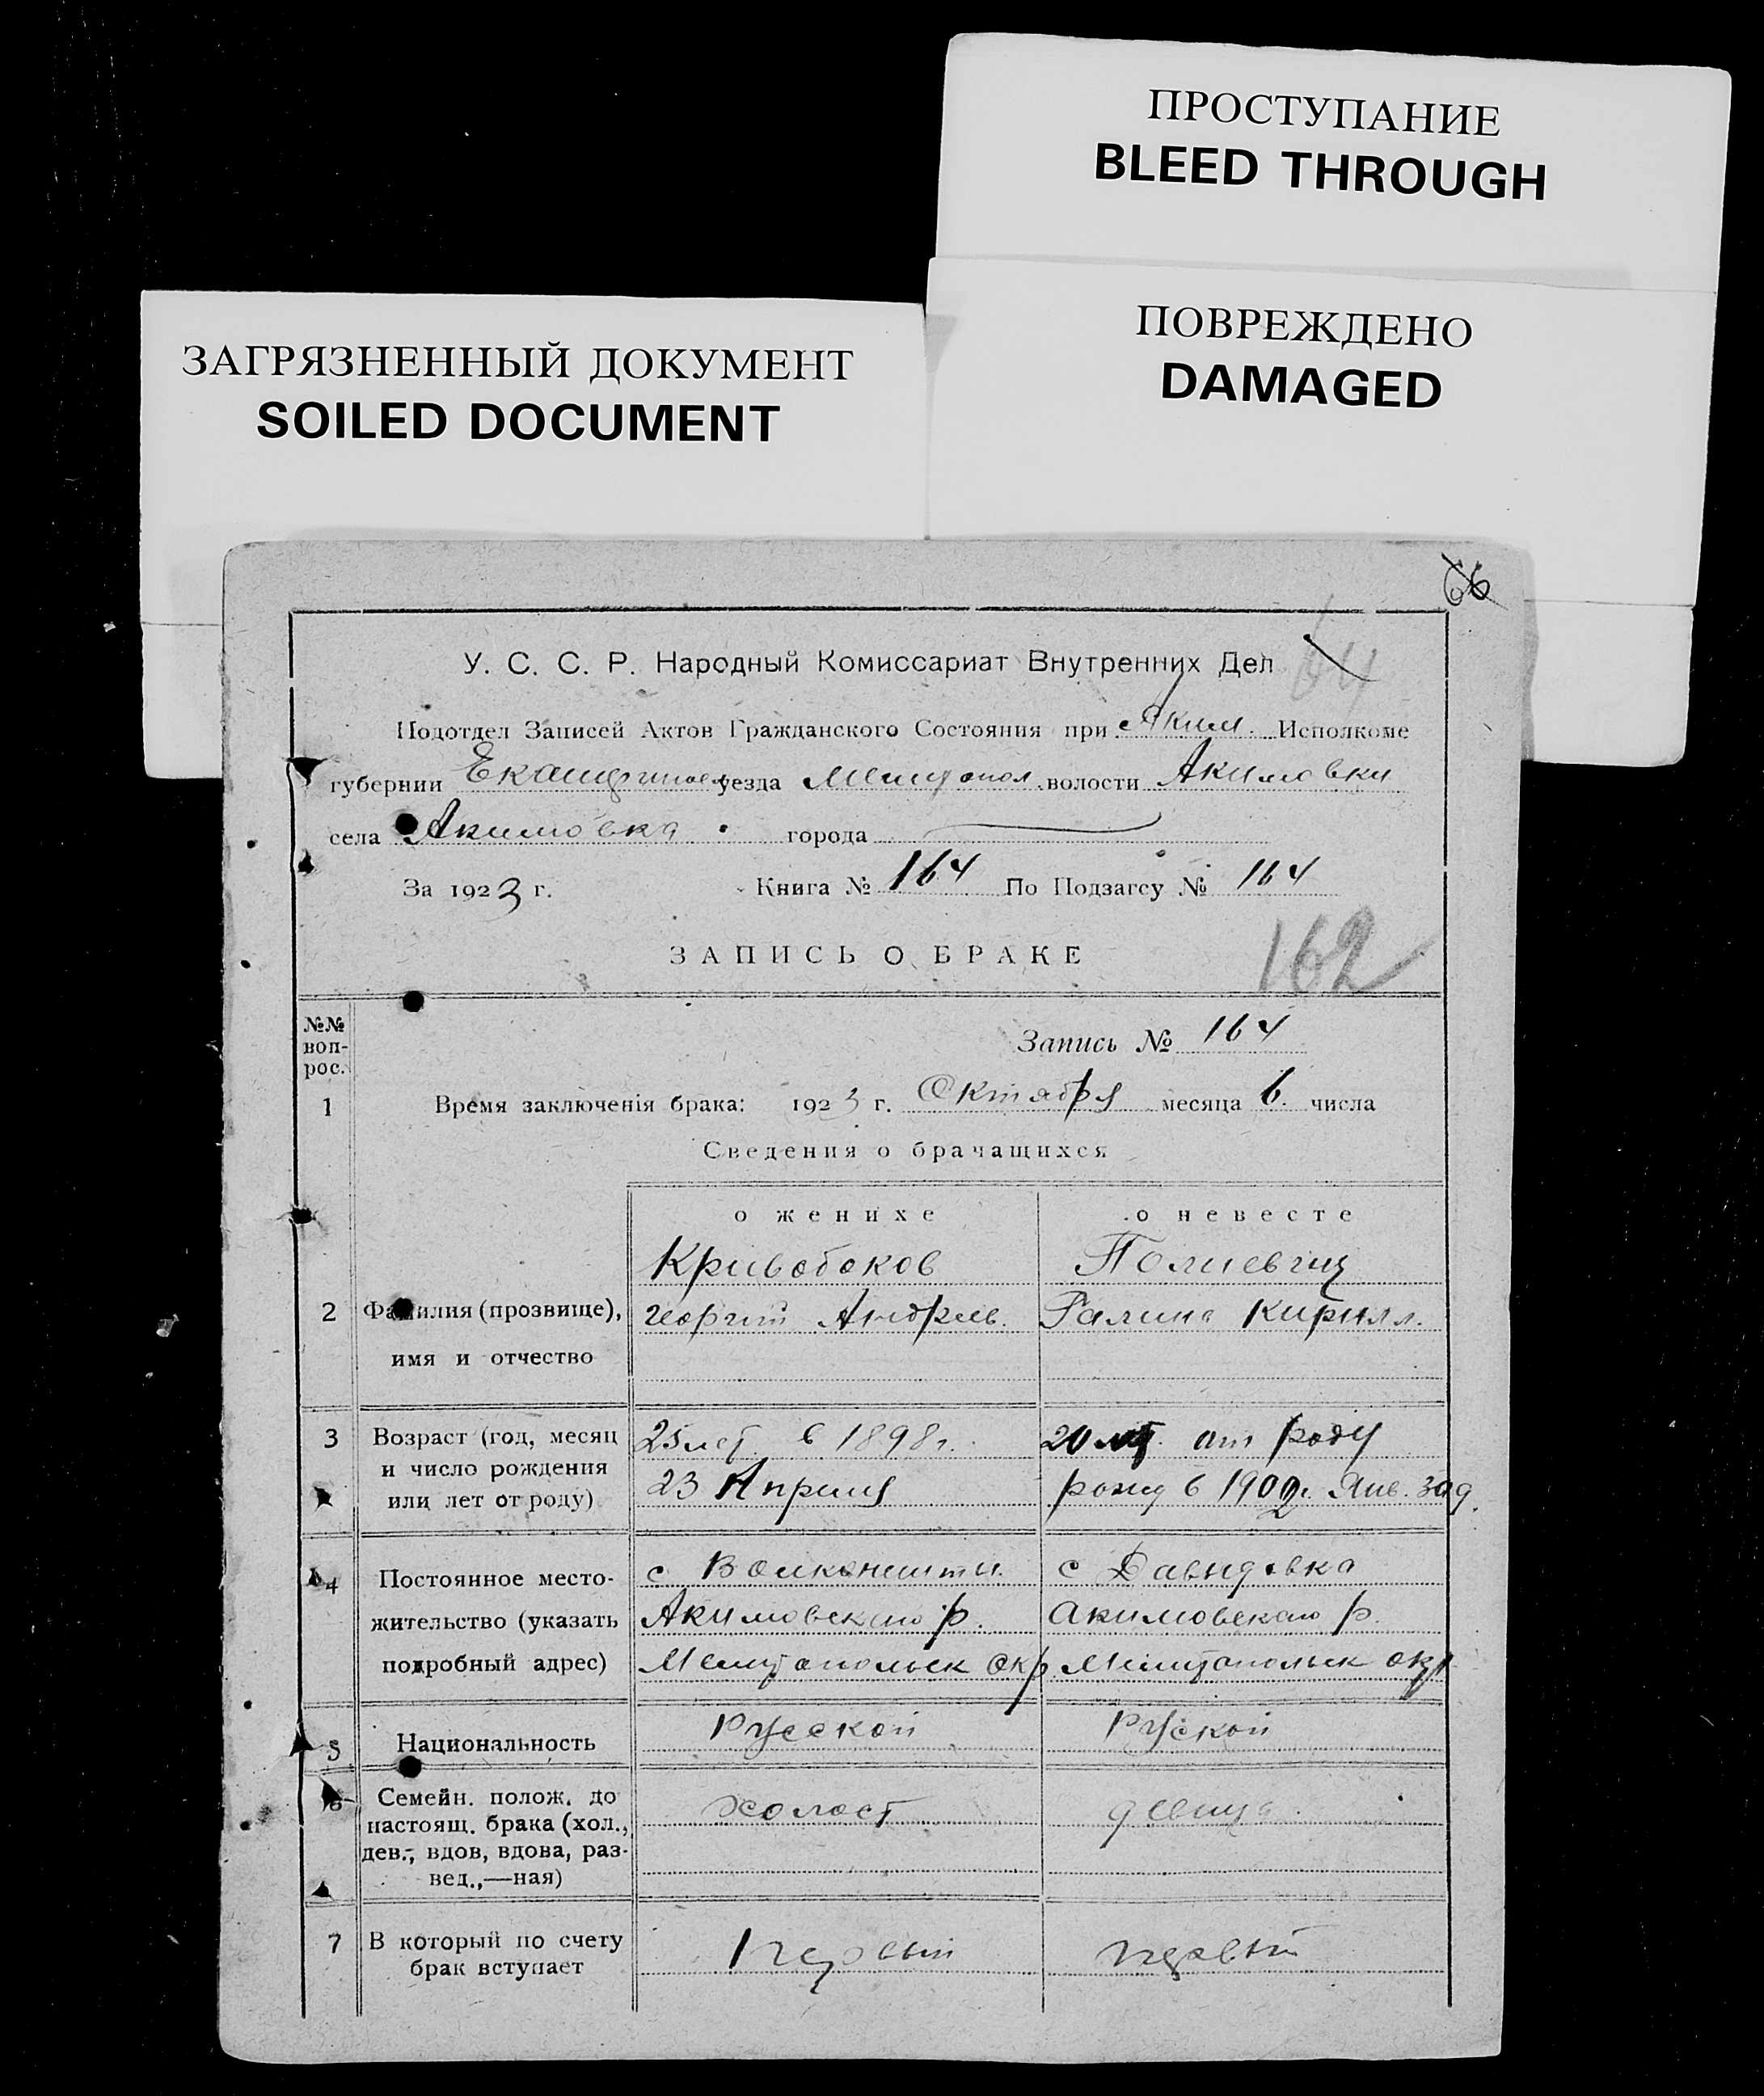 ПРОСТУПАНИЕ
BLEED THROUGH
ПОВРЕЖДЕНО
DAMAGED
ЗАГРЯЗНЕННЫЙ ДОКУМЕНТ
SOILED DOCUMENT
66
64
У. С. С. Р. Народный Комиссариат Внутренних Дел
Подотдел Записей Актов Гражданского Состояния при Аким. Исполкоме
губернии Екатеринослв уезда Мелитопол. волости Акимовки
села Акимовка города
За 1923 г. Книга № 164 По Подзагсу № 164
ЗАПИСЬ О БРАКЕ
162
№№ воп-рос.
Запись № 164
1 Время заключенія брака: 1923 г. Октября месяца 6. числа
Сведения о брачащихся
о женихе о невесте
Кривобоков Полиевчиц
2 Фамилия (прозвище), Георгий Андреев. Галина Кирилл.
имя и отчество
3 Возраст (год, месяц 25 лет. в 1898 г. 20 лет. от роду
и число рождения
или лет от роду) 23 Апреля рожд в 1902 г. Янв. 30 д.
4 Постоянное место- с. с Давыдовка
жительство (указать Акимовского р. Акимовского р.
подробный адрес) Мелитопольск окр. Мелитопольск окр
5 Национальность Русской Руской
6 Семейн. полож. до
настоящ. брака (хол., холост девица.
дев., вдов, вдова, раз-
вед.,—ная)
7 В который по счету первый первый
брак вступает